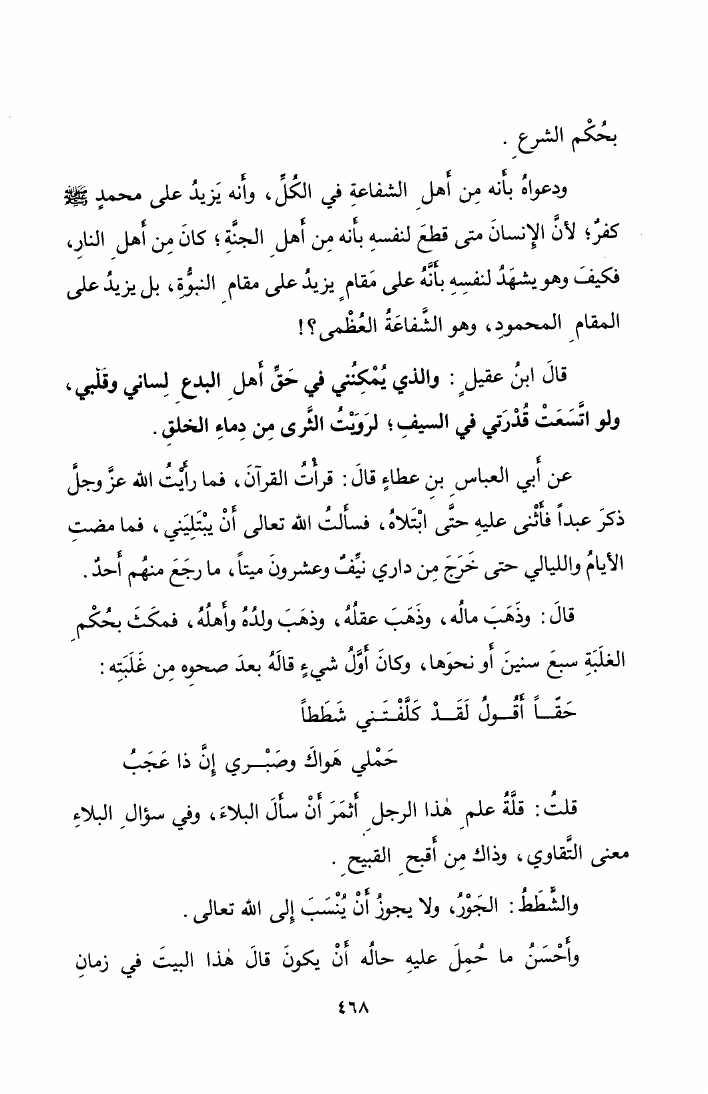 بحُكْمِ الشرعِ .
ودعواهُ بأنه مِن أَهلِ الشفاعةِ في الكُلِّ، وأَنه يَزيدُ على محمدٍ ﷺ
كفرٌ؛ لأنَّ الإِنسانَ متى قطعَ لنفسهِ بأنه مِن أَهلِ الجنَّةِ؛ كانَ مِن أَهلِ النارِ،
فكيفَ وهو يشهَدُ لنفسِهِ بأَنَّهُ على مَقامٍ يزيدُ على مقامِ النبوُّةِ، بل يزيدُ على
المقامِ المحمودِ، وهو الشَّفاعَةُ العُظْمى؟!
قالَ ابنُ عقيلٍ : والذي يُمْكِنُني في حَقِّ أَهلِ البدعِ لِساني وقَلْبي،
ولو اتَّسَعَتْ قُدْرَتي في السيفِ؛ لرَوَيْتُ الثَّرى مِن دِماءِ الخلقِ.
عن أَبي العباسِ بنِ عطاءٍ قالَ: قرأْتُ القرآنَ، فما رأَيْتُ الله عزَّ وجلَّ
ذكرَ عبداً فأَثْنى عليهِ حتَّى ابْتَلاهُ، فسأَلتُ الله تعالى أَنْ يبْتَلِيَني، فما مضتِ
الأيامُ والليالي حتى خَرَجَ مِن داري نيِّفٌ وعشرونَ ميتاً، ما رجَعَ منهُم أَحدٌ.
قالَ: وذَهَبَ مالُه، وذَهَبَ عقلُهُ، وذهَبَ ولدُهُ وأَهلُهُ، فمكَثَ بحُكْمِ
الغلَبَةِ سبعَ سنينَ أَو نحوَها، وكانَ أَوَّلُ شيءٍ قالَهُ بعدَ صحوِه مِن غَلَبَتِه:
حَقّــاً أَقُــولُ لَقَــدْ كَلَّفْتَـنـي شَطَطاً
حَمْلي هَواكَ وصَبْــري إِنَّ ذا عَجَبُ
قلتُ: قلَّةُ علمِ هٰذا الرجلِ أَثمَرَ أَنْ سأَلَ البلاءَ، وفي سؤالِ البلاءِ
معنى التَّقاوي، وذاك مِن أَقبحِ القبيحِ.
والشَّطَطُ: الجَوْرُ، ولا يجوزُ أَنْ يُنْسَبَ إِلى الله تعالى.
وأَحْسَنُ ما حُمِلَ عليهِ حالُه أَنْ يكونَ قالَ هٰذا البيتَ في زمانِ
٤٦٨